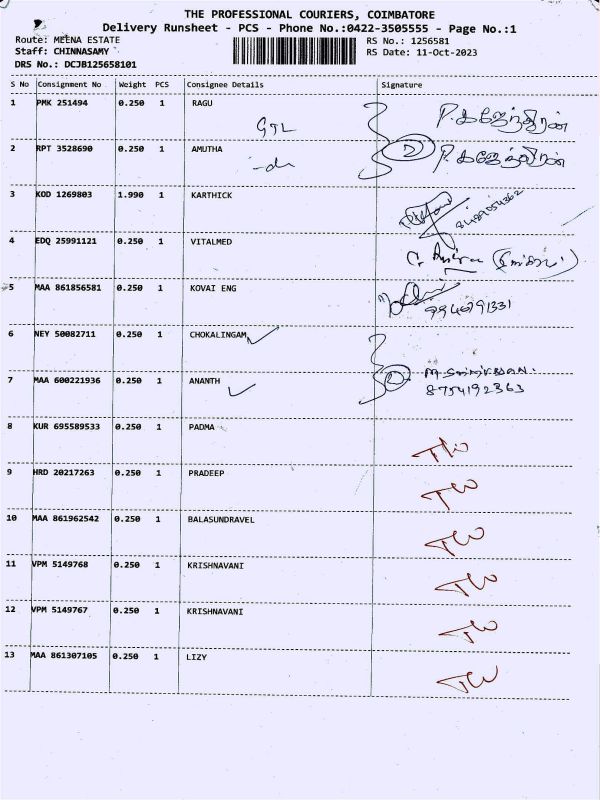 THE PROFESSIONAL COURIERS, COIMBATORE
Delivery Runsheet - PCS - Phone No.:0422-3505555 - Page No.:1
Route: MEENA ESTATE
RS No.: 1256581
Staff: CHINNASAMY
RS Date: 11-Oct-2023
DRS No.: DCJB125658101
S No Consignment No Weight PCS Consignee Details Signature
1 PMK 251494 0.250 1 RAGU
GTL
P. கஜேந்திரன்
2 RPT 3528690 0.250 1 AMUTHA
-do
2 P. கஜேந்திரன்
3 KOD 1269803 1.990 1 KARTHICK
4 EDQ 25991121 0.250 1 VITALMED
5 MAA 861856581 0.250 1 KOVAI ENG
6 NEY 50082711 0.250 1 CHOKALINGAM
7 MAA 600221936 0.250 1 ANANTH
8754192363
8 KUR 695589533 0.250 1 PADMA
9 HRD 20217263 0.250 1 PRADEEP
10 MAA 861962542 0.250 1 BALASUNDRAVEL
11 VPM 5149768 0.250 1 KRISHNAVANI
12 VPM 5149767 0.250 1 KRISHNAVANI
13 MAA 861307105 0.250 1 LIZY